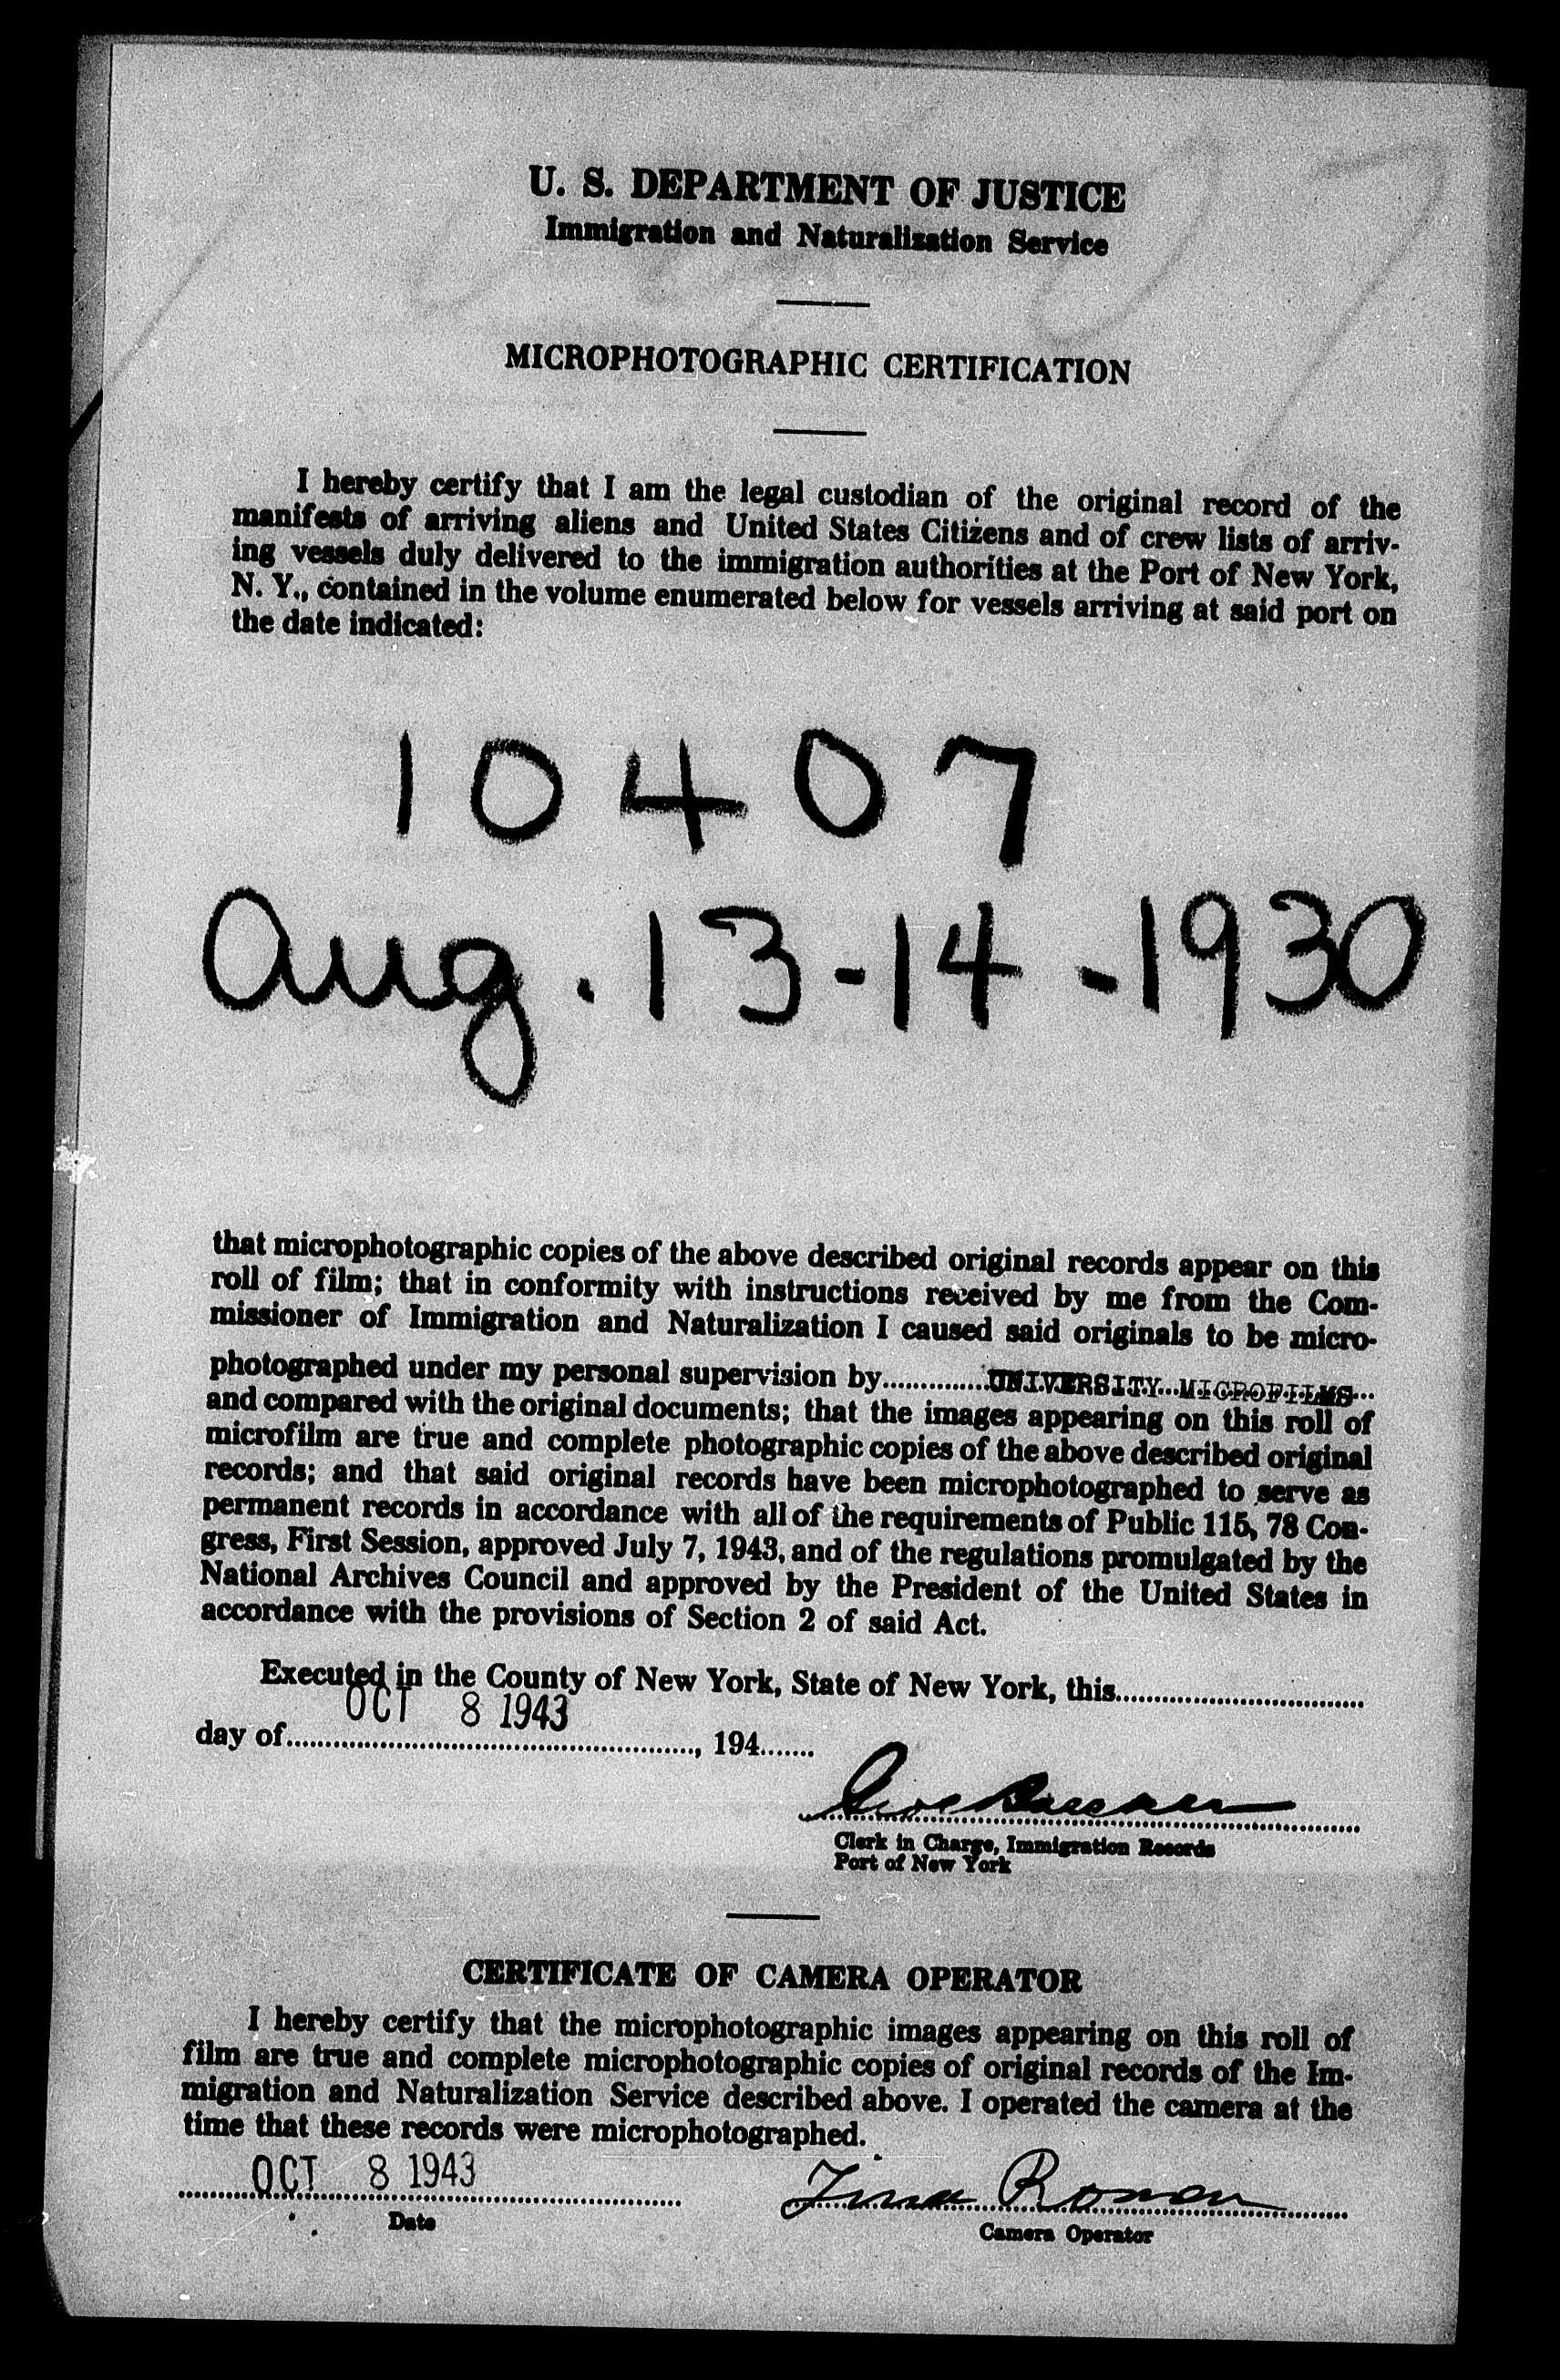 U. S. DEPARTMENT OF JUSTICE
Immigration and Naturalization Service
MICROPHOTOGRAPHIC CERTIFICATION
I hereby certify that I am the legal custodian of the original record of the
manifests of arriving aliens and United States Citizens and of crew lists of arriv-
ing vessels duly delivered to the immigration authorities at the Port of New York,
N. Y., contained in the volume enumerated below for vessels arriving at said port on
the date indicated:
10407
Aug. 13-14-1930
that microphotographic copies of the above described original records appear on this
roll of film; that in conformity with instructions received by me from the Com-
missioner of Immigration and Naturalization I caused said originals to be micro-
photographed under my personal supervision by..............UNIVERSITY MICROFILMS...
and compared with the original documents; that the images appearing on this roll of
microfilm are true and complete photographic copies of the above described original
records; and that said original records have been microphotographed to serve as
permanent records in accordance with all of the requirements of Public 115, 78 Con-
gress, First Session, approved July 7, 1943, and of the regulations promulgated by the
National Archives Council and approved by the President of the United States in
accordance with the provisions of Section 2 of said Act.
Executed in the County of New York, State of New York, this................................
OCT 8 1943
day of......................................................, 194.......
Clerk in Charge, Immigration Records
Port of New York
CERTIFICATE OF CAMERA OPERATOR
I hereby certify that the microphotographic images appearing on this roll of
film are true and complete microphotographic copies of original records of the Im-
migration and Naturalization Service described above. I operated the camera at the
time that these records were microphotographed.
OCT 8 1943
Date
Camera Operator